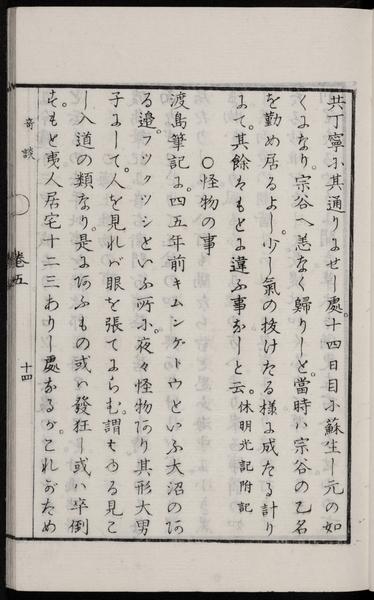 共丁寧に其通りにせし處。十四日目に蘇生し元の如
くになり。宗谷へ恙なく歸りしと。當時ハ宗谷の乙名
を勤め居るよし。少し氣の抜けたる様に成たる計り
にて。其餘ハもとに違ふ事なしと云。休明光記附記
〇怪物の事
渡島筆記に。四五年前キムンゲトウといふ大沼のほと
る邉。フツクツシといふ所に。夜々怪物あり其形大男
子にして。人を見れバ眼を張てにらむ。謂ゆる見こ
し入道の類なり。是にあふもの或ハ發狂し或ハ卒倒
す。もと夷人居宅十二三ありし處なるが。これがため
奇談
卷五
十四